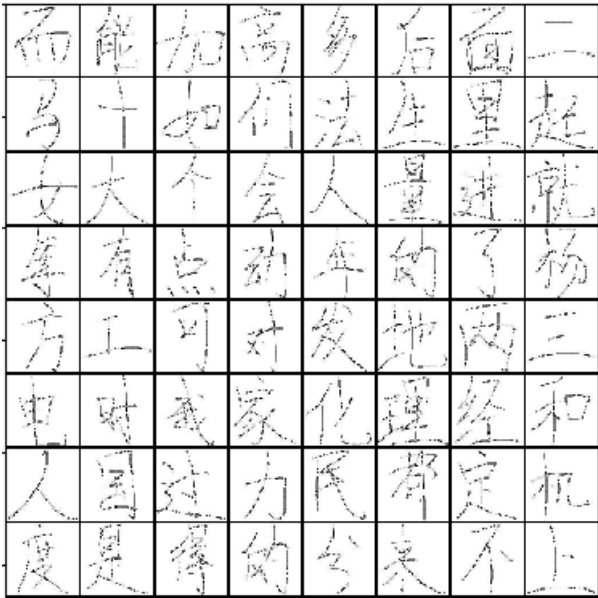 而能加高多后面二
十如们法生里起
女大个会人量进就
年有点动年的了物
方工可对发地两三
也时我家化理经和
人国过力民都定机
度是得的分来不上